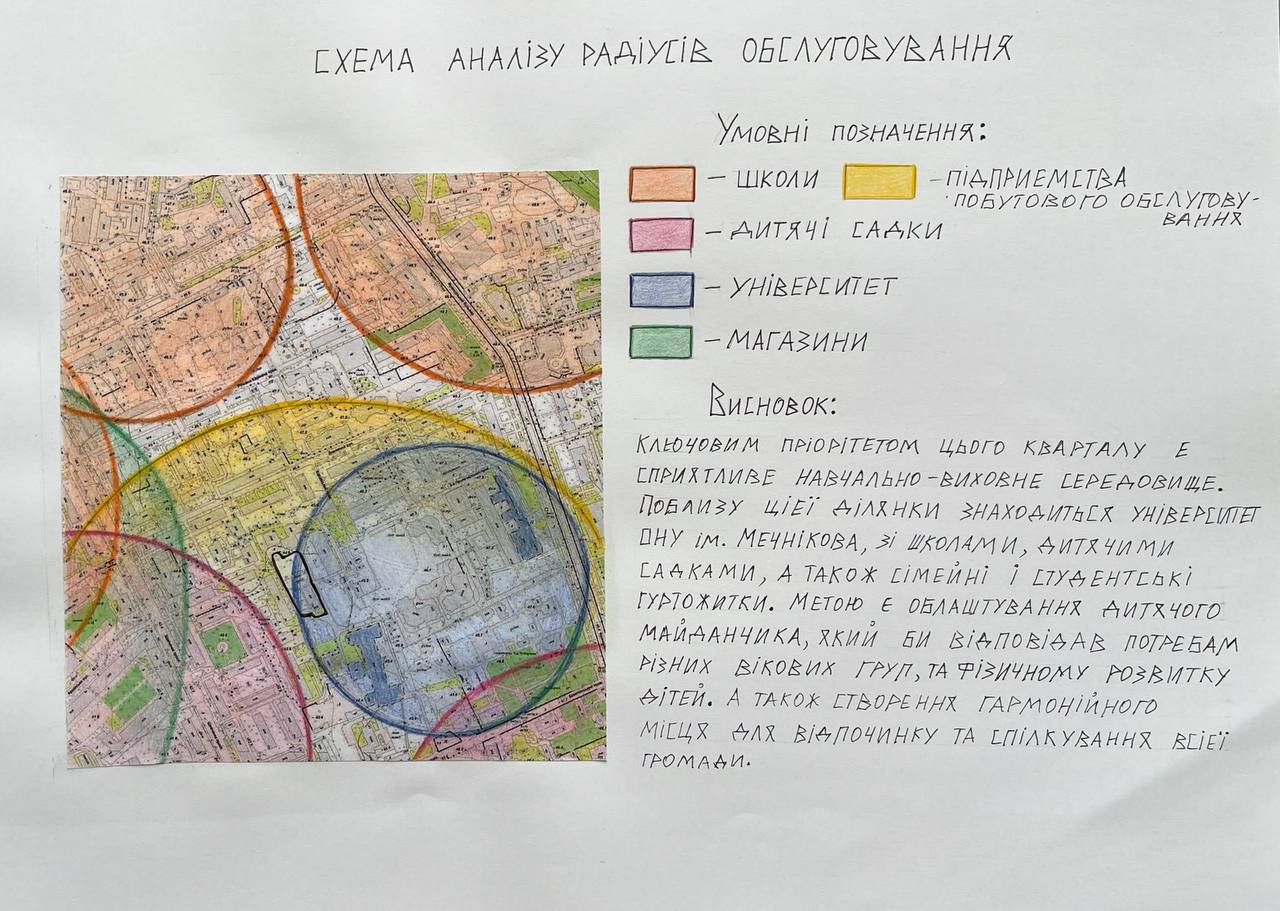 СХЕМА АНАЛІЗУ РАДІУСІВ ОБСЛУГОВУВАННЯ
Умовні позначення:
– ШКОЛИ
– ПІДПРИЕМСТВА
ПОБУТОВОГО ОБСЛУГОВУ-
ВАННЯ
– ДИТЯЧІ САДКИ
– УНІВЕРСИТЕТ
– МАГАЗИНИ
Висновок:
КЛЮЧОВИМ ПРІОРІТЕТОМ ЦЬОГО КВАРТАЛУ Є
СПРИЯТЛИВЕ НАВЧАЛЬНО-ВИХОВНЕ СЕРЕДОВИЩЕ.
ПОБЛИЗУ ЦІЄЇ ДІЛЯНКИ ЗНАХОДИТЬСЯ УНІВЕРСИТЕТ
ОНУ ім. МЕЧНІКОВА, ЗІ ШКОЛАМИ, ДИТЯЧИМИ
САДКАМИ, А ТАКОЖ СІМЕЙНІ І СТУДЕНТСЬКІ
ГУРТОЖИТКИ. МЕТОЮ Є ОБЛАШТУВАННЯ ДИТЯЧОГО
МАЙДАНЧИКА, ЯКИЙ БИ ВІДПОВІДАВ ПОТРЕБАМ
РІЗНИХ ВІКОВИХ ГРУП, ТА ФІЗИЧНОМУ РОЗВИТКУ
ДІТЕЙ. А ТАКОЖ СТВОРЕННЯ ГАРМОНІЙНОГО
МІСЦЯ ДЛЯ ВІДПОЧИНКУ ТА СПІЛКУВАННЯ ВСІЄЇ
ГРОМАДИ.